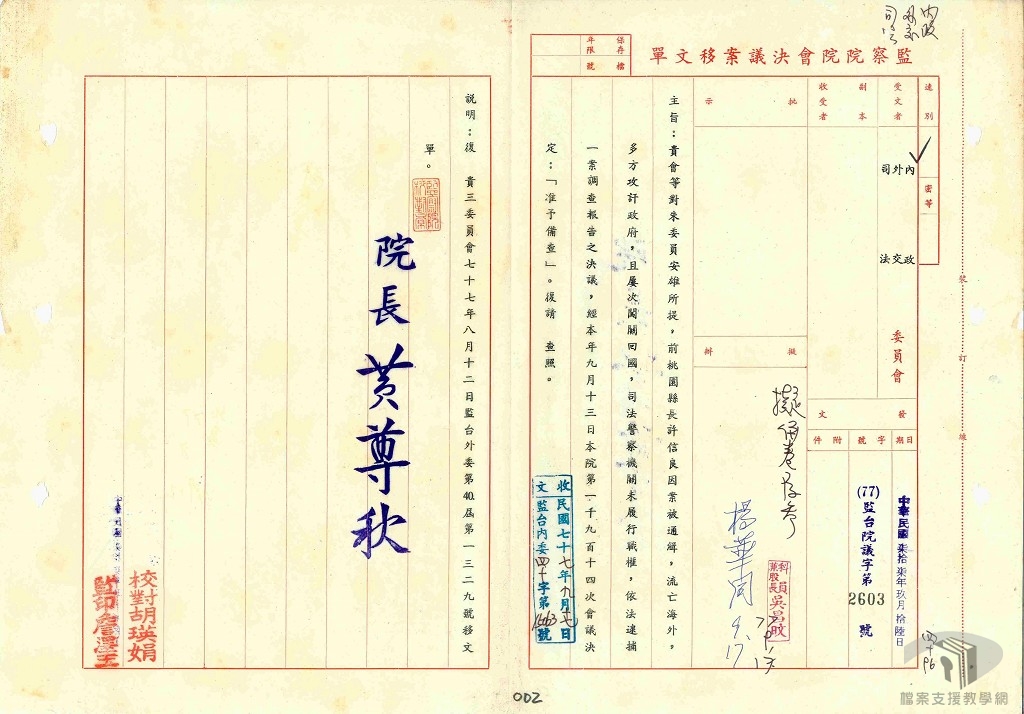 內政
外交
司法
監察院院會決議案移文單
保存年限
檔號
速別
密等
受文者
內政
外交
司法
委員會
副本收受者
發文
日期
中華民國柒拾柒年玖月拾陸日
字號
(77)監台院議字第2603號
附件
批示
擬辦
擬併卷存參
楊華同
9.17
科員兼股長吳昌旼
主旨：貴會等對朱委員安雄所提，前桃園縣長許信良因案被通緝，流亡海外，
多方攻訐政府，且屢次闖關回國，司法警察機關未履行職權，依法逮捕
一案調查報告之決議，經本年九月十三日本院第一千九百十四次會議決
定：「准予備查」。復請　查照。
收文
民國七十七年九月十七日
監台內委四十字第1663號
說明：復　貴三委員會七十七年八月十二日監台外委第40屆第一三二九號移文
單。
院長黃尊秋
校對胡瑛娟
監印
裝
訂
線
四十96
002
檔案支援教學網